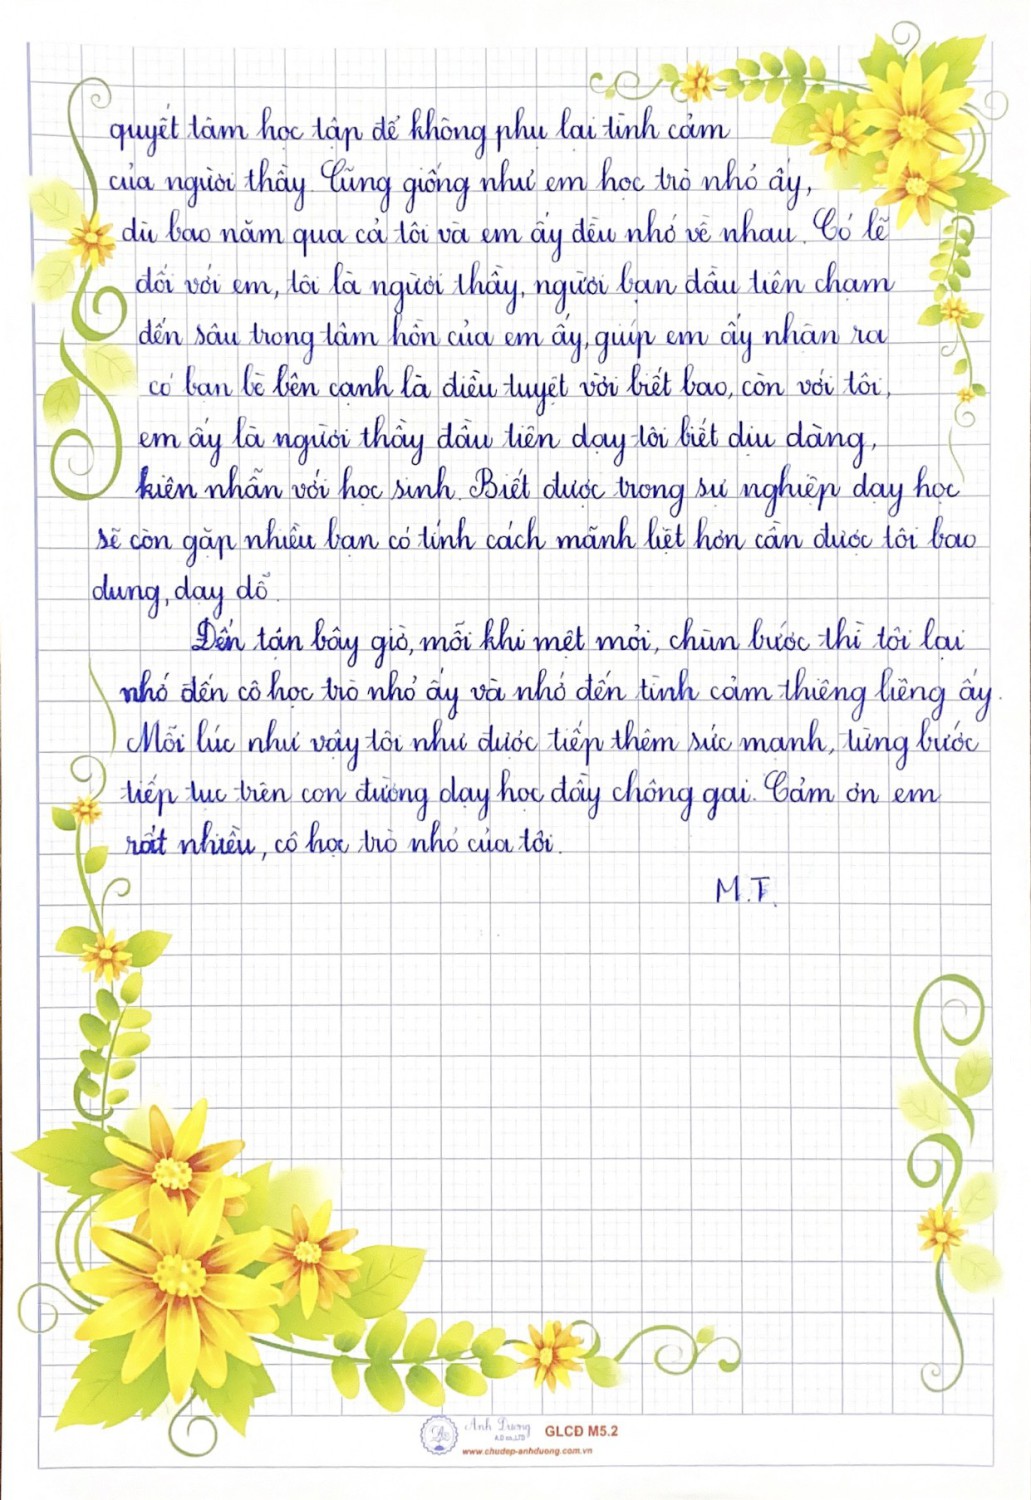 quyết tâm học tập để không phụ lại tình cảm
của người thầy. Cũng giống như em học trò nhỏ ấy,
dù bao năm qua cả tôi và em ấy đều nhớ về nhau. Có lẽ
đối với em, tôi là người thầy, người bạn đầu tiên chạm
đến sâu trong tâm hồn của em ấy, giúp em ấy nhận ra
có bạn bè bên cạnh là điều tuyệt vời biết bao, còn với tôi,
em ấy là người thầy đầu tiên dạy tôi biết dịu dàng,
kiên nhẫn với học sinh. Biết được trong sự nghiệp dạy học
sẽ còn gặp nhiều bạn có tính cách mãnh liệt hơn cần được tôi bao
dung, dạy dỗ.
Đến tận bây giờ, mỗi khi mệt mỏi, chùn bước thì tôi lại
nhớ đến cô học trò nhỏ ấy và nhớ đến tình cảm thiêng liêng ấy.
Mỗi lúc như vậy tôi như được tiếp thêm sức mạnh, từng bước
tiếp tục trên con đường dạy học đầy chông gai. Cảm ơn em
rất nhiều, cô học trò nhỏ của tôi.
M.T.
Ánh Dương GLCĐ M5.2
A.D co.,LTD
www.chudep-anhduong.com.vn